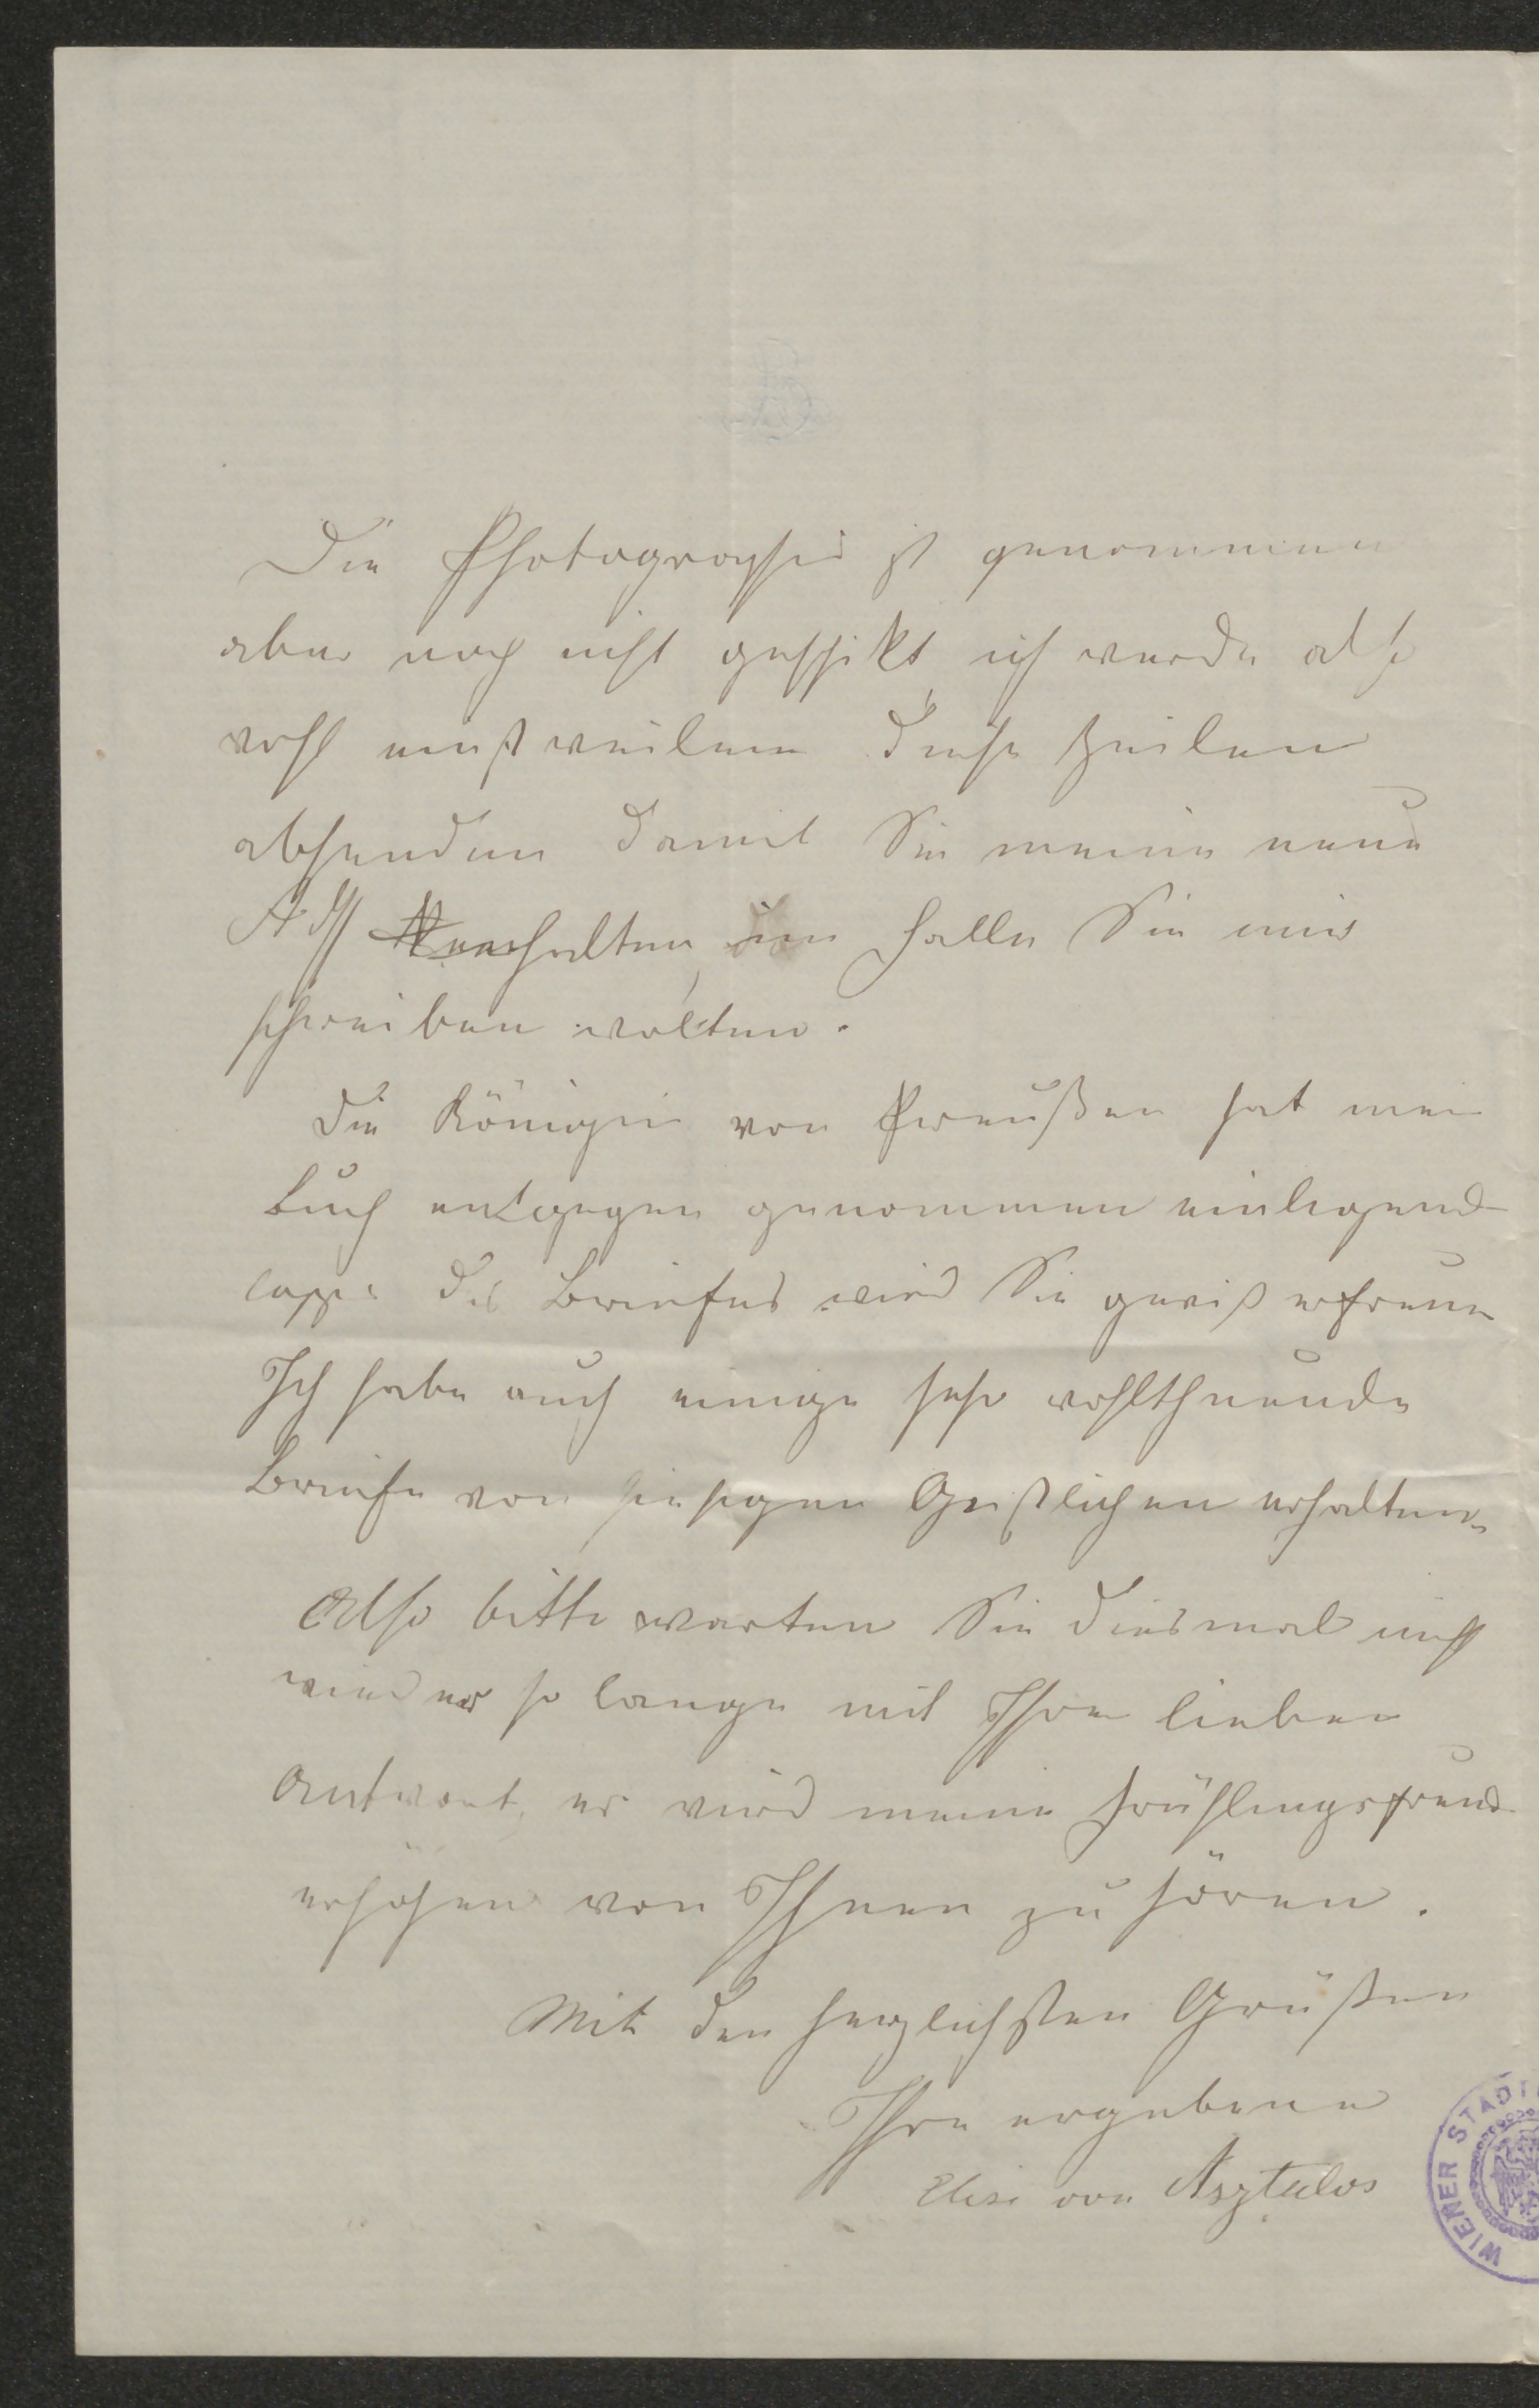 Die Photographie ist genommen
aber noch nicht geschikt, ich werde also
wohl einstweilen diese Zeilen
absenden damit Sie meine neue
Ads erhalten, im Falle Sie mir
schreiben wolten.
Die Königin von Preußen hat mein
Buch entgegen genommen einliegend
Copie des Briefes wird Sie gewiß erfreuen
Ich habe auch einige sehr wohlthuende
Briefe von hiesigen Geistlichen erhalten.
Also bitte warten Sie diesmal nicht
wieder so lange mit Ihrer lieben
Antwort, es wird meine Frühlingsfreude
erhöhen von Ihnen zu hören.
Mit den herzlichsten Grüßen
Ihre ergebene
Elise von Asztalos
WIENER STADT